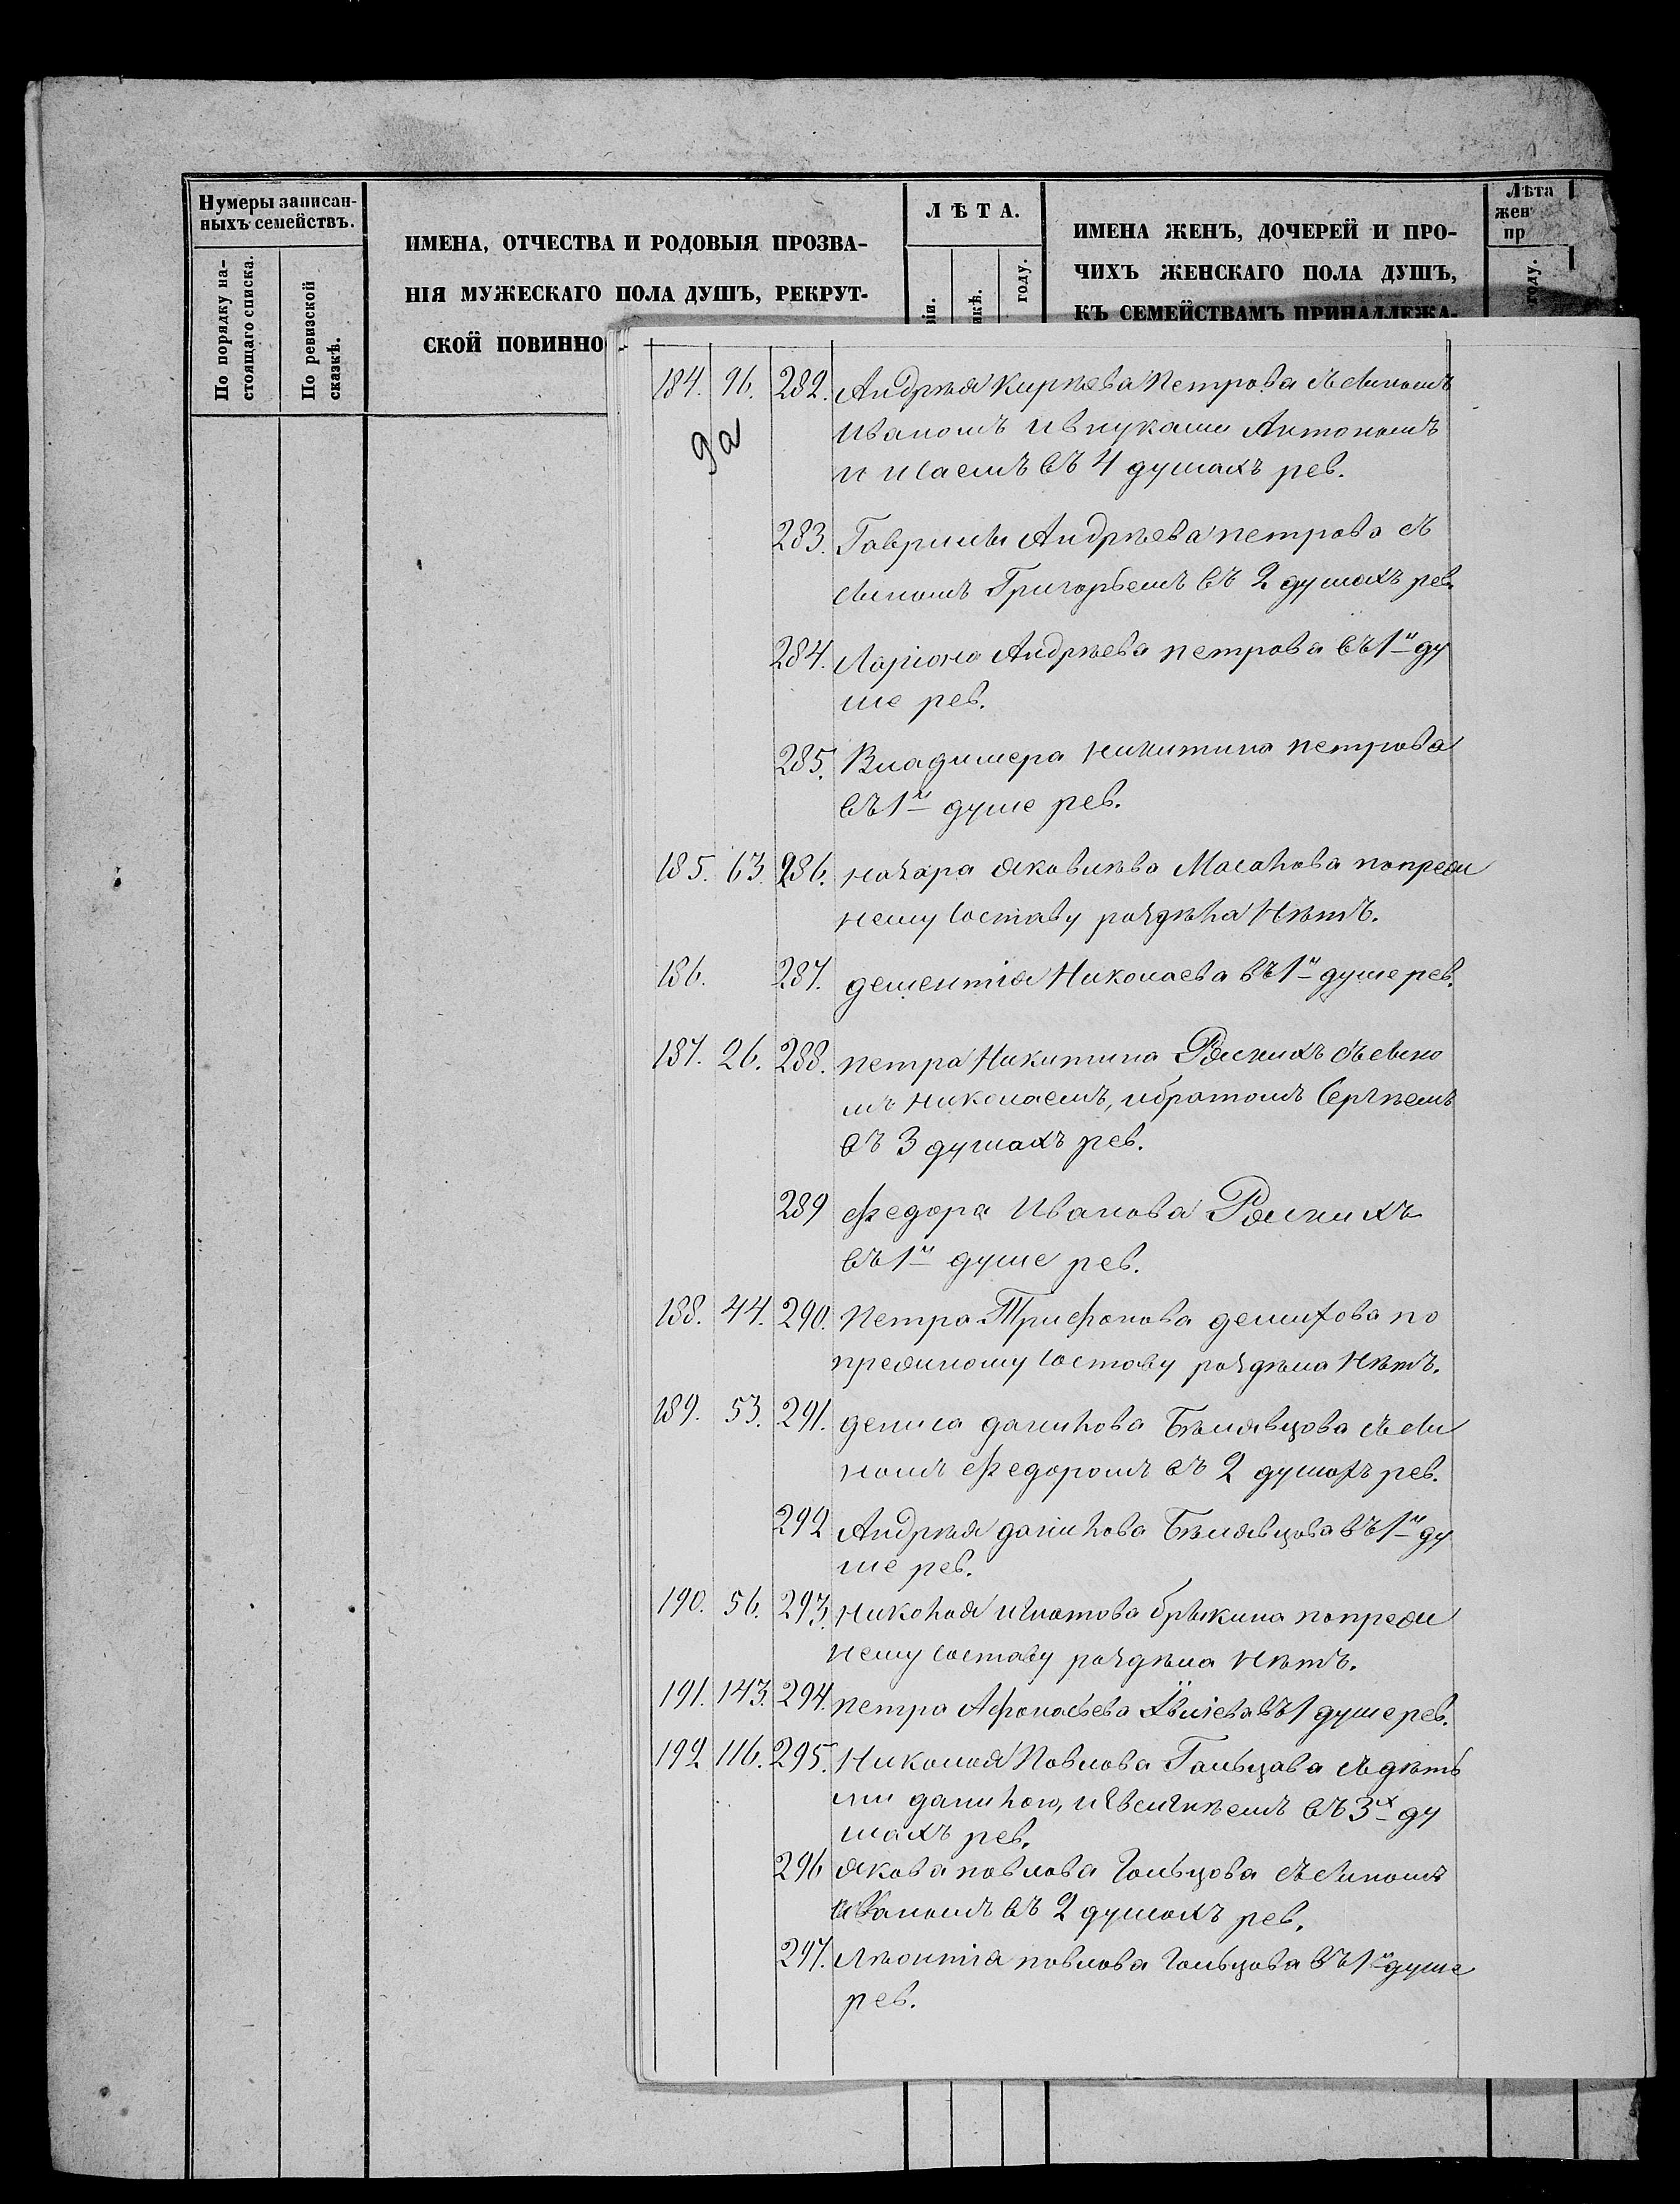 Нумеры записан-
ныхъ семействъ.
По порядку на-
стоящаго списка.
По ревизской
сказкѣ.
ИМЕНА, ОТЧЕСТВА И РОДОВЫЯ ПРОЗВА-
НІЯ МУЖЕСКАГО ПОЛА ДУШЪ, РЕКРУТ-
СКОЙ ПОВИННО
ЛѢТА.
зіи.
икѣ.
году.
ИМЕНА ЖЕНЪ, ДОЧЕРЕЙ И ПРО-
ЧИХЪ ЖЕНСКАГО ПОЛА ДУШЪ,
КЪ СЕМЕЙСТВАМЪ ПРИНАДЛЕЖА-
Лѣта
жен
пр
году.
184. 96. 282. Андрѣя Кирѣева Петрова съ сыномъ
9а
Иваномъ и внуками Антономъ
и Исаемъ въ 4 душахъ рев.
283. Гаврилы Андрѣева петрова съ
сыномъ Григорьемъ въ 2 душахъ рев.
284. Ларіона Андрѣева петрова въ 1й ду
ше рев.
285. Владимера никитина петрова
въ 1й душе рев.
185. 63. 286. назара яковлѣва Масалова попрежн
нему составу раздѣла Нѣтъ.
186. 287. дементія Николаева въ 1й душе рев.
187. 26. 288. петра Никитина Ряскихъ съ сыно
мъ николаемъ, и братомъ Сергѣемъ
въ 3 душахъ рев.
289 федора Иванова Ряскихъ
въ 1й душе рев.
188. 44. 290. Петра Трифонова демихова по
прежнему составу раздѣла Нѣтъ.
189. 53. 291. дениса данилова Бѣлявцова съ сы
номъ федоромъ въ 2 душахъ рев.
292 Андрѣя данилова Бѣлявцова въ 1й ду
ше рев.
190. 56. 293. николая игнатова брыкина попрежн
нему составу раздѣла Нѣтъ.
191. 143. 294. петра Афонасьева въ 1 душе рев.
192 116. 295. Николая Павлова Гальцава съ дѣть
ми данилою, и Евсигнѣемъ въ 3х ду
шахъ рев.
296 якова павлова Гальцова съ сыномъ
иваномъ въ 2 душахъ рев.
297. Лѣонтія павлова Гальцова въ 1й душе
рев.